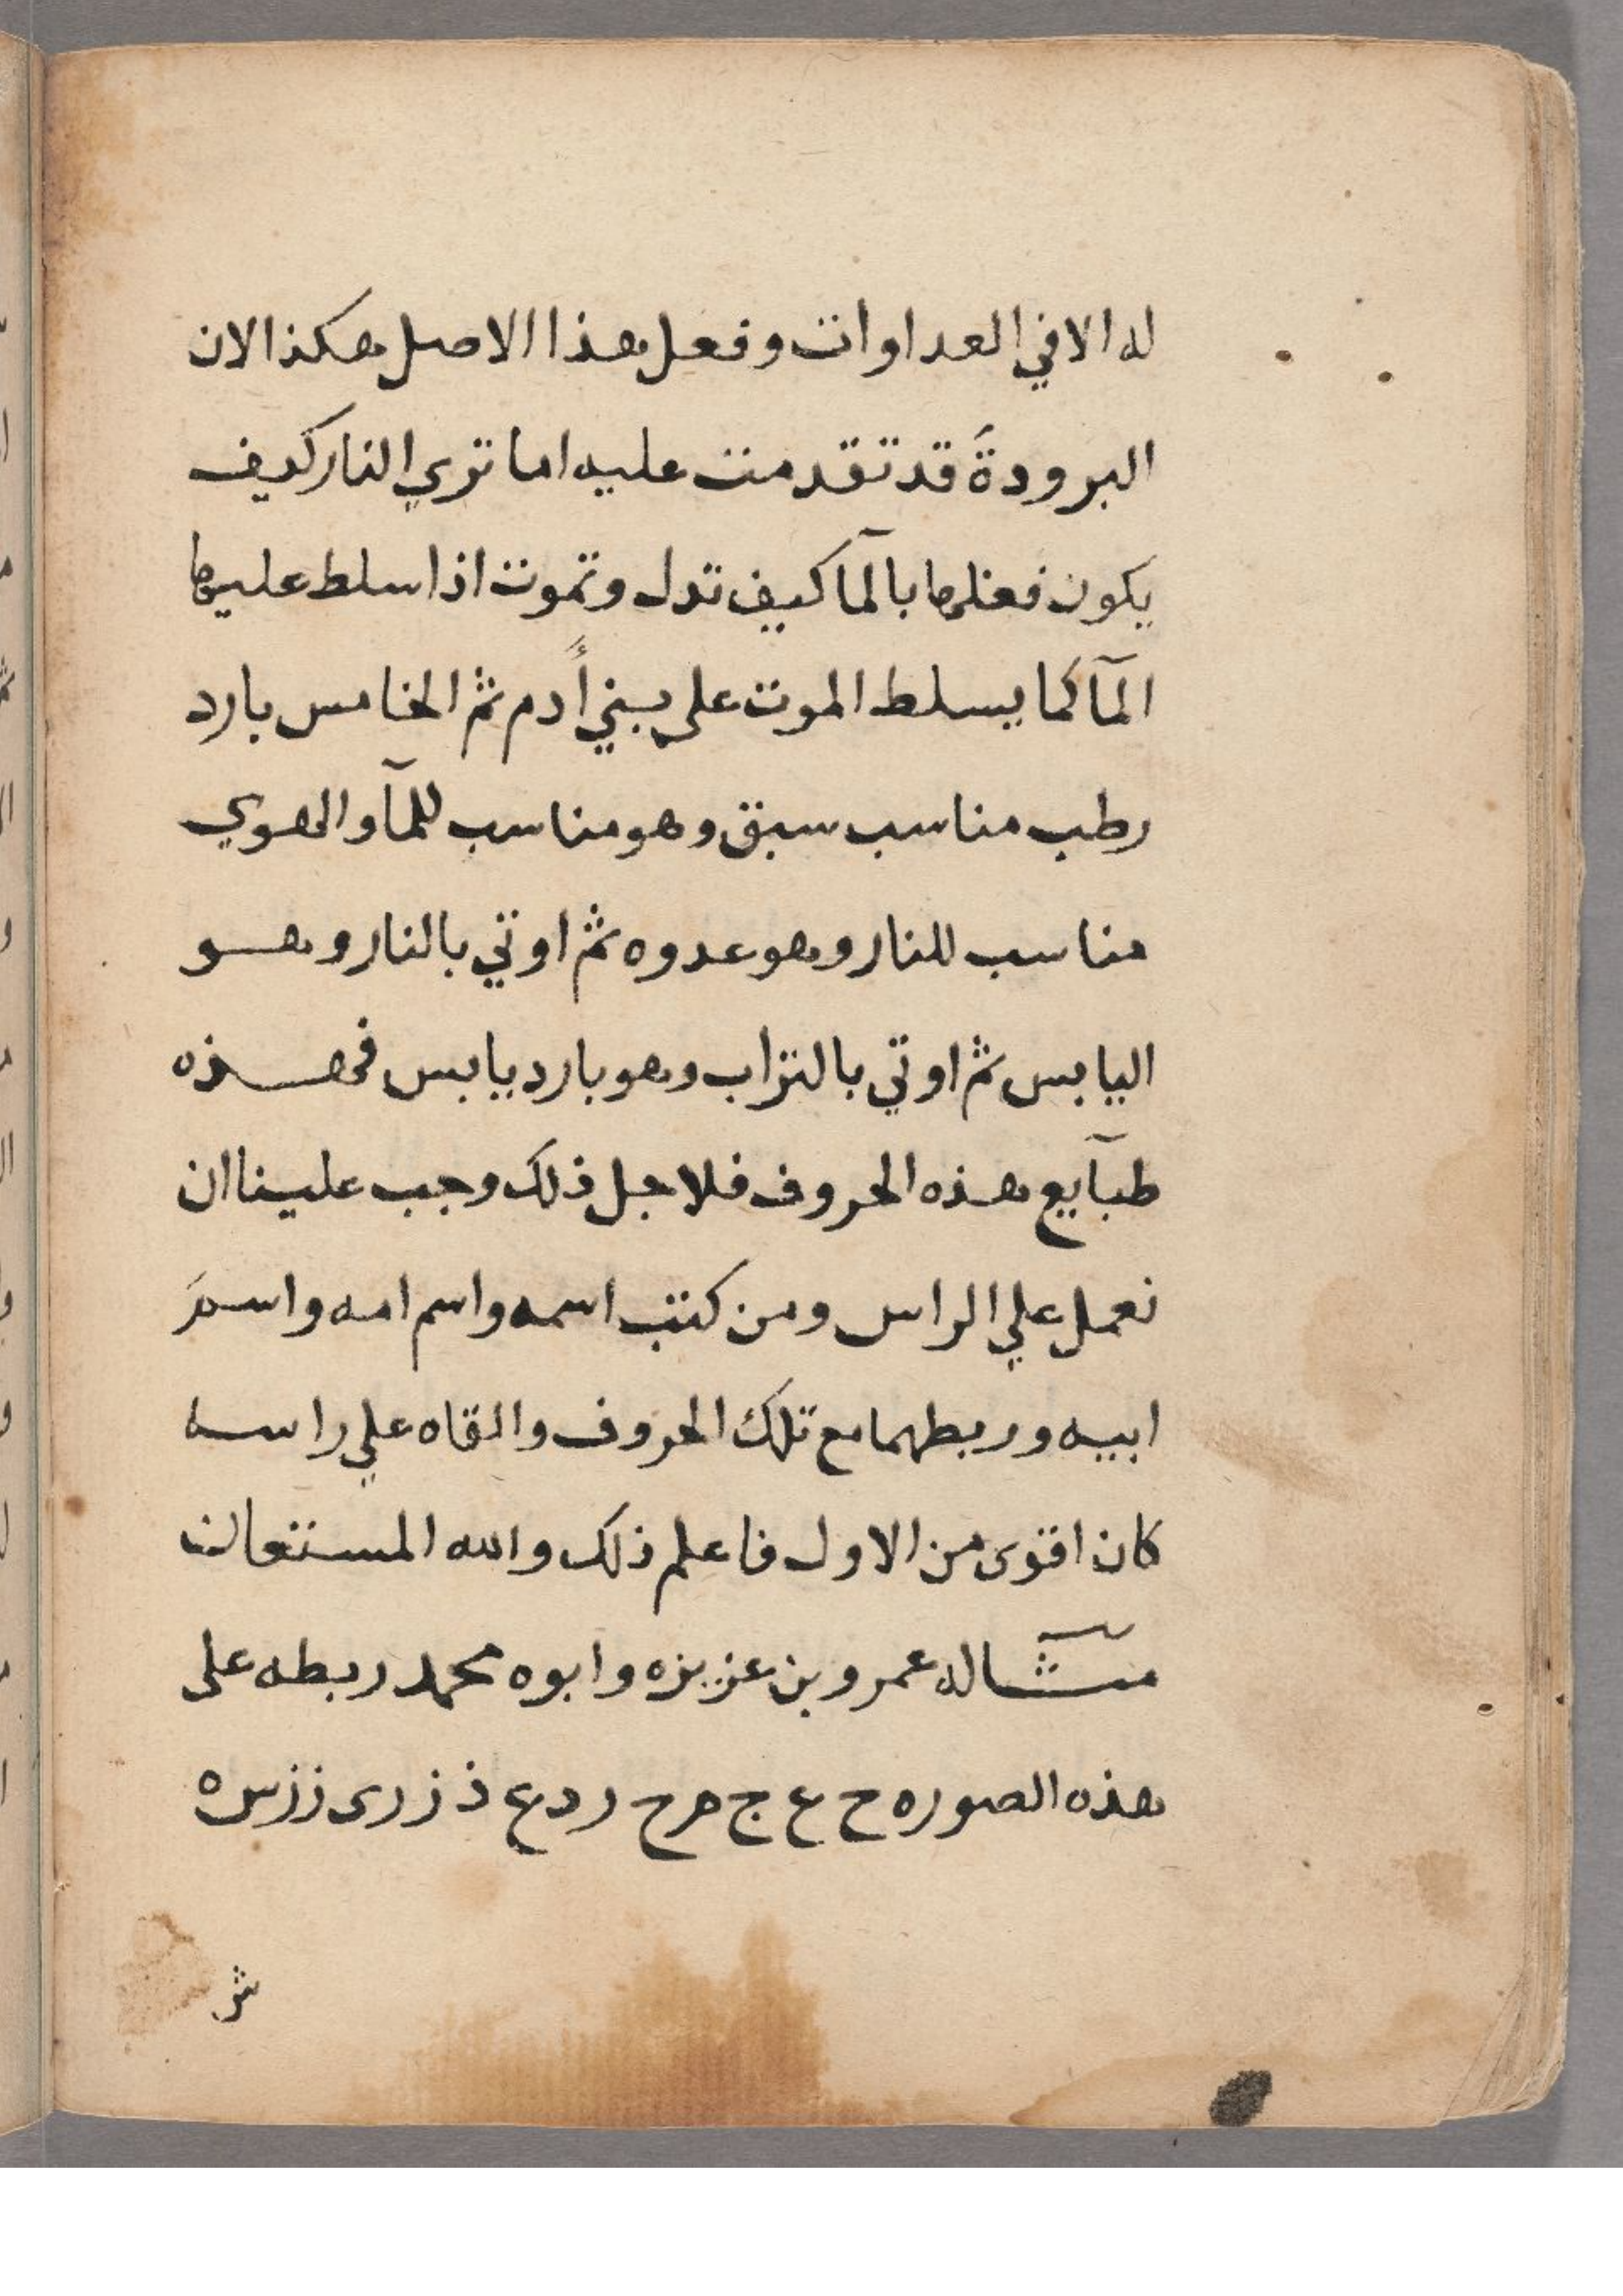 له الا في العداوات وفعل هذا الاصل هكذا الان
البرودة قد تقدمت عليه اما تري النار كيف
يكون فعلها بالمآ كيف تدل وتموت اذا سلط عليها
المآ كما يسلط الموت على بني أدم ثم الخامس بارد
رطب مناسب سبق وهو مناسب للمآ والهوي
مناسب للنار وهو عدوه ثم اوتي بالنار وهو
اليابس ثم اوتي بالتراب وهو بارد يابس فهذه
طبآيع هذه الحروف فلاجل ذلك وجب علينا ان
نعمل علي الراس ومن كتب اسمه واسم امه واسم
ابيه وربطهما مع تلك الحروف والقاه علي راسه
كان اقوى من الاول فاعلم ذلك والله المستعان
مثاله عمرو بن عزيزه وابوه محمد ربطه على
هذه الصوره ح ع ج م ح ر د ع ذ ز ر ى ز ز س ه